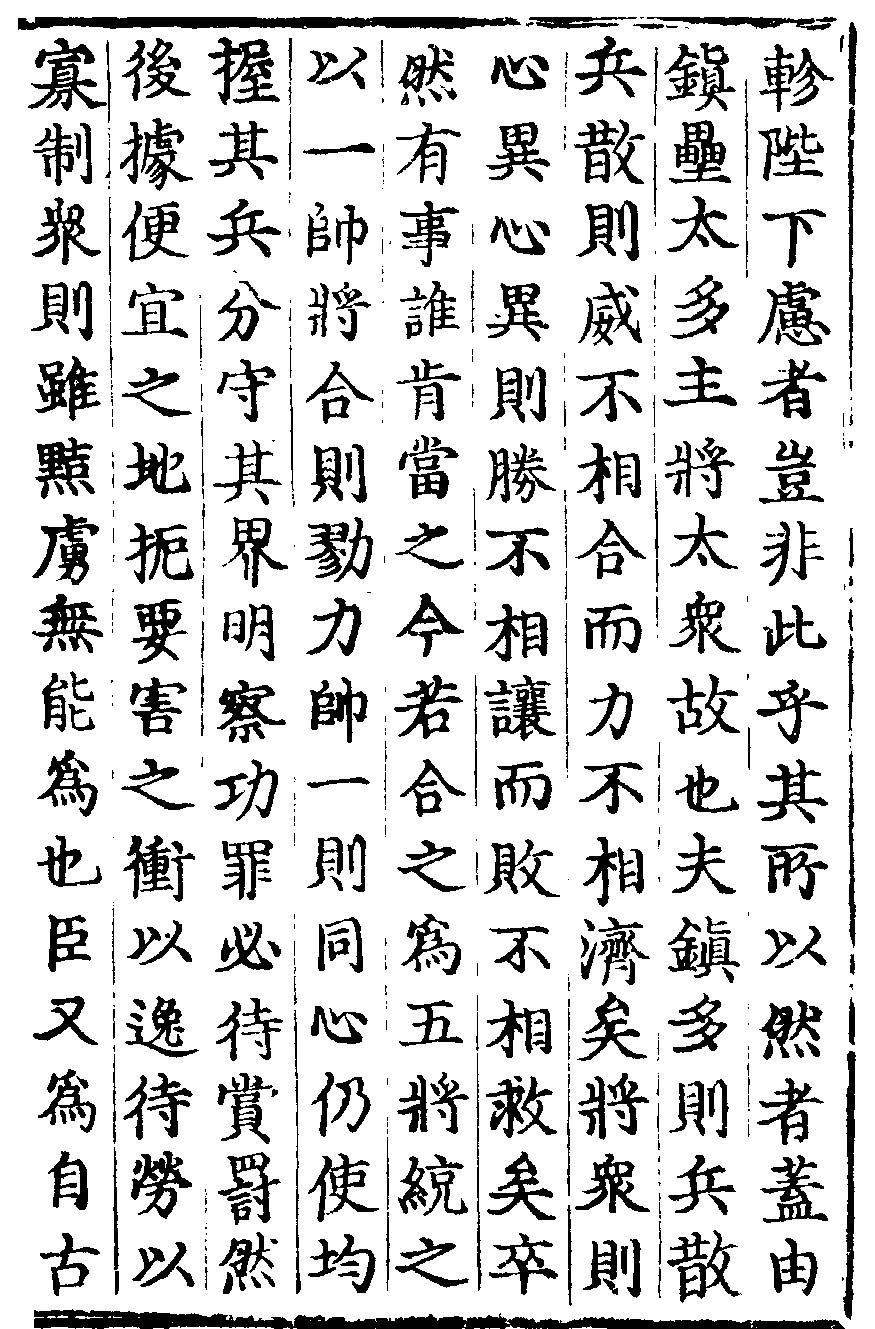 軫陛下慮者豈非此乎其所以然者蓋由
鎭壘太多主將太衆故也夫鎭多則兵散
兵散則威不相合而力不相濟矣將衆則
心異心異則勝不相讓而敗不相救矣卒
然有事誰肯當之今若合之爲五將統之
以一帥將合則勠力帥一則同心仍使均
握其兵分守其界明察功罪必待賞罰然
後據便宜之地扼要害之衝以逸待勞以
寡制衆則雖黠虜無能爲也臣又爲自古